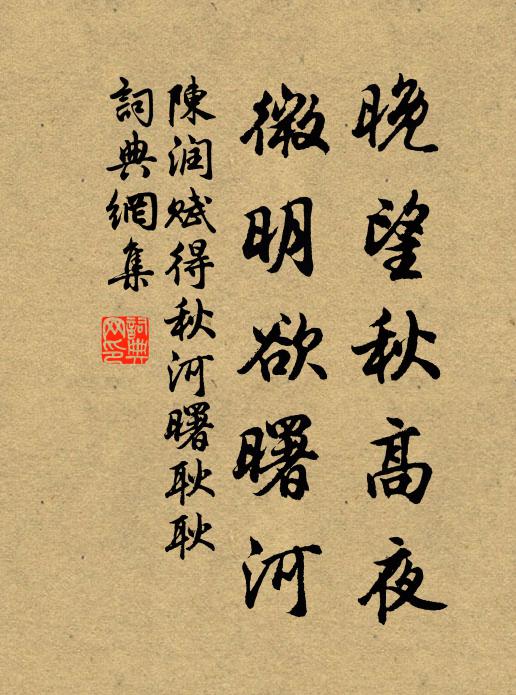 晚望秋高夜
微明欲曙河
陳润赋得秋河曙耿耿
詞典網集
詞典
网印